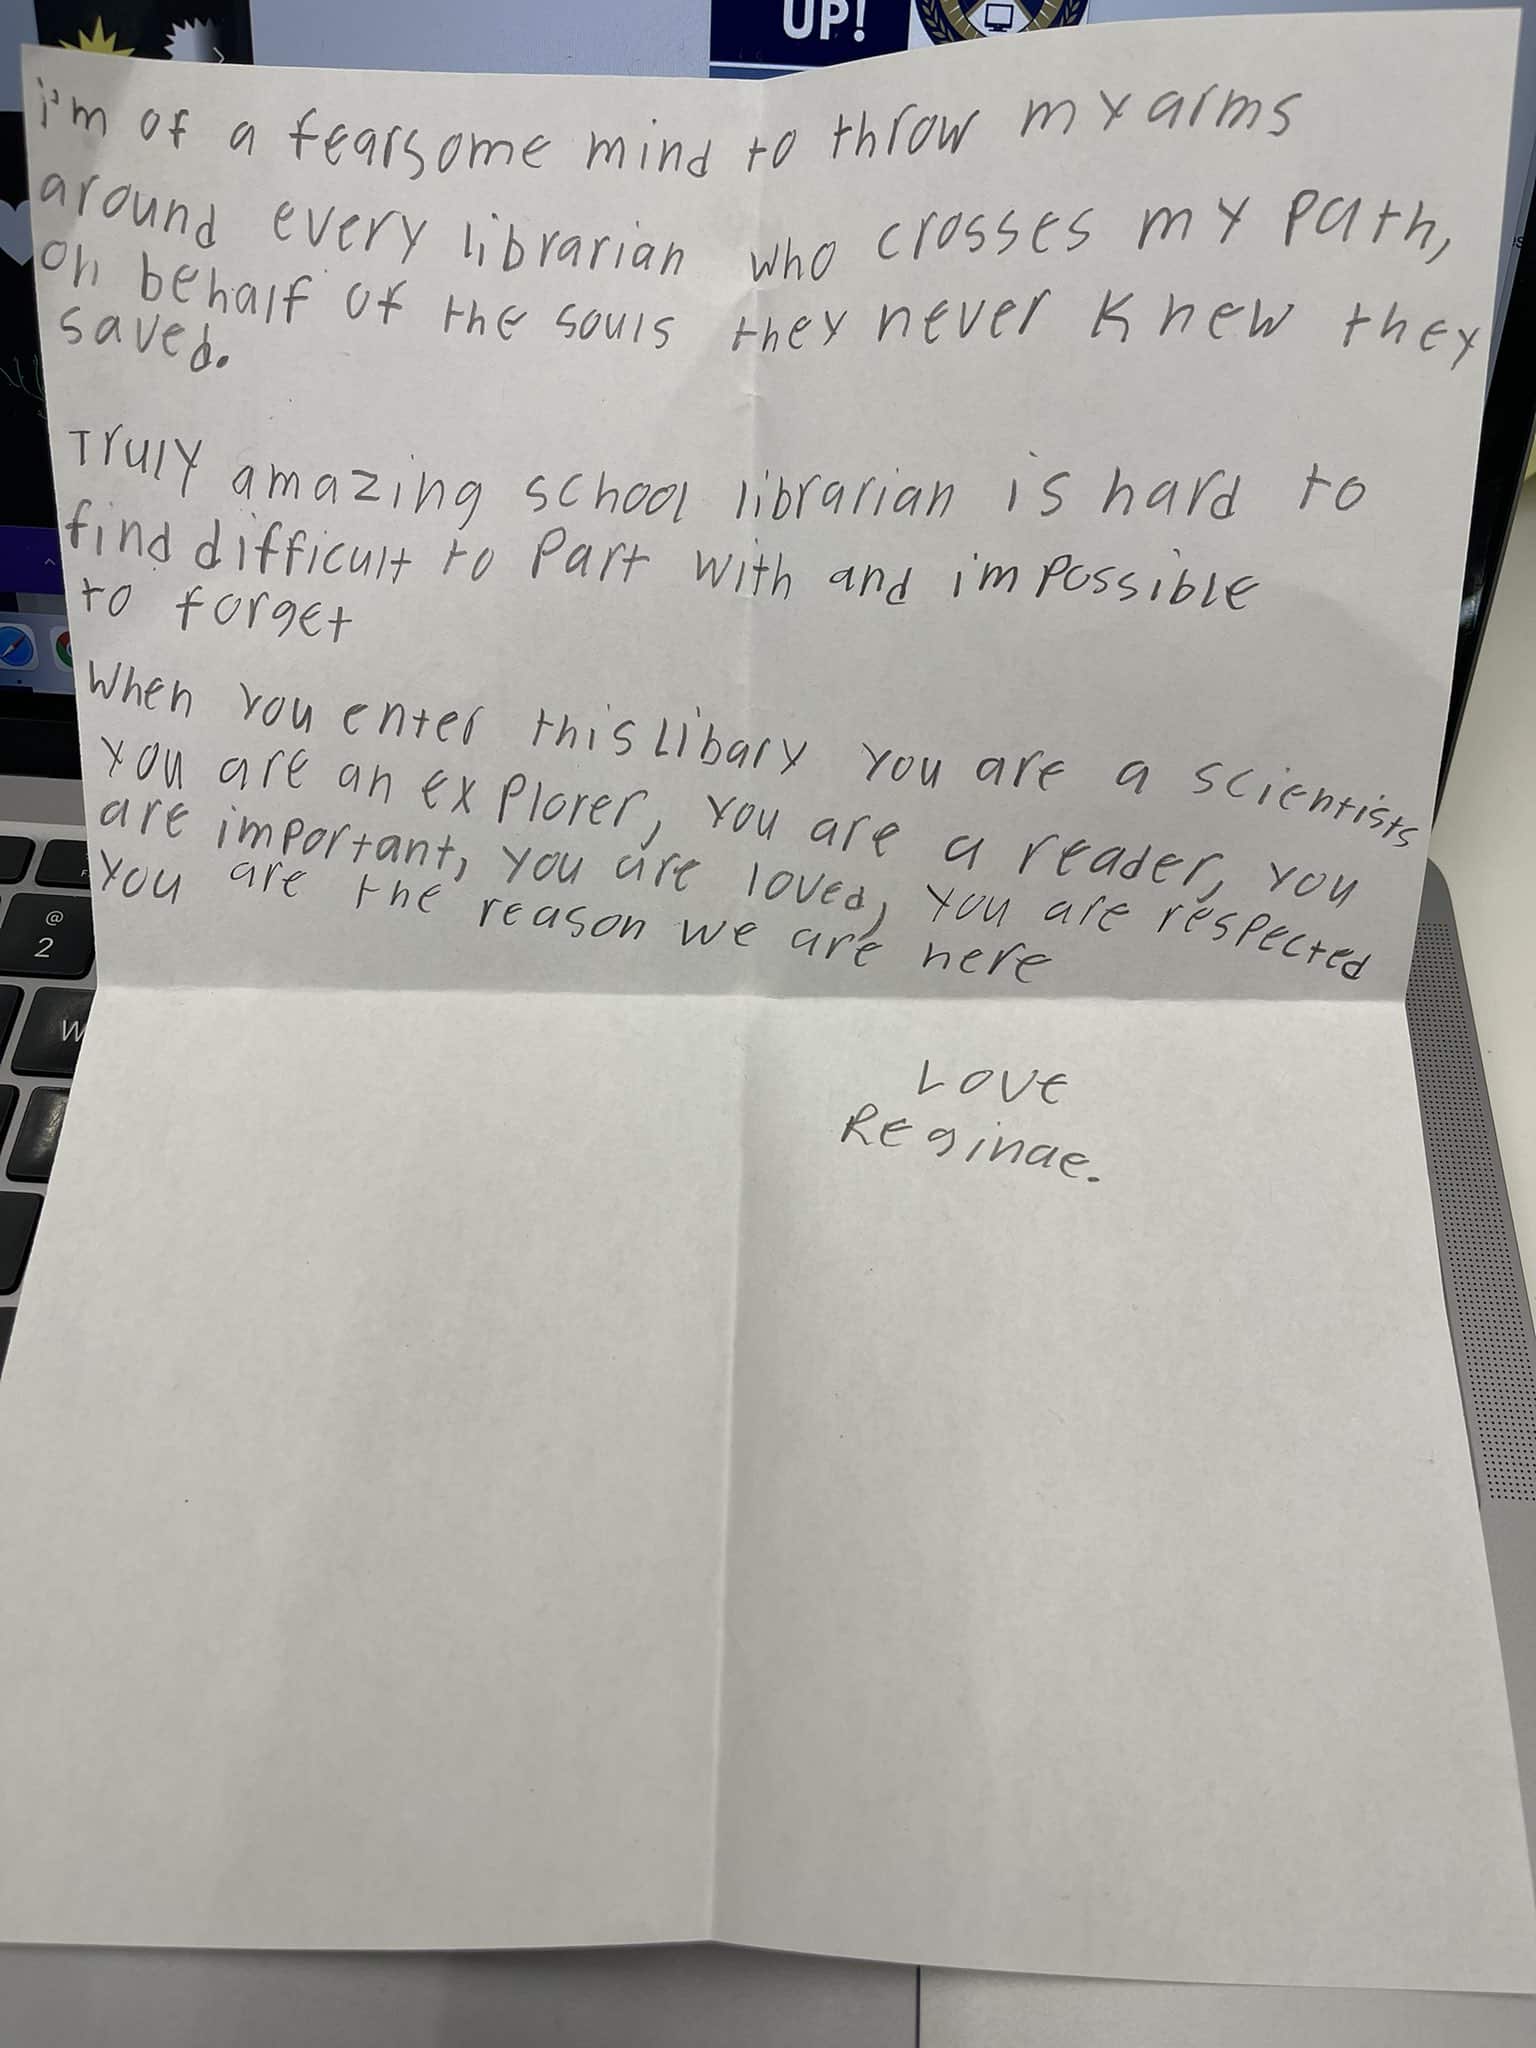 UP!
i'm of a fearsome mind to throw my arms
around every librarian who crosses my path,
on behalf of the souls they never knew they
saved.
Truly amazing school librarian is hard to
find difficult to part with and impossible
to forget
When you enter this Libary you are a scientists
you are an explorer, you are a reader, you
are important, you are loved, you are respected
you are the reason we are here
Love
Reginae.
@
2
W